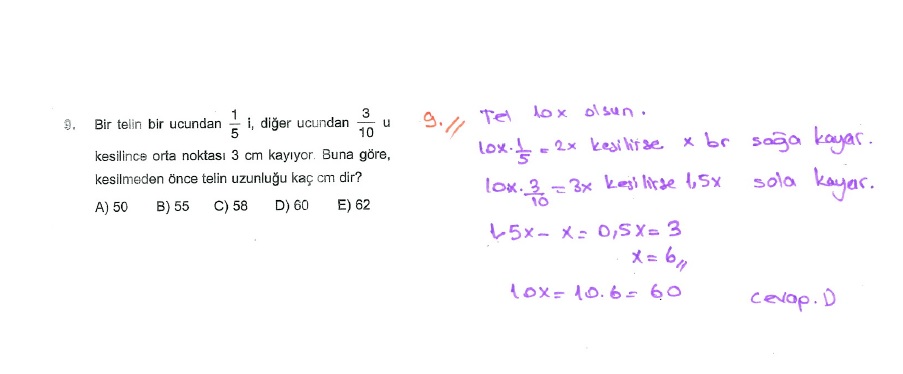 9. Bir telin bir ucundan 1/5 i, diğer ucundan 3/10 u
kesilince orta noktası 3 cm kayıyor. Buna göre,
kesilmeden önce telin uzunluğu kaç cm dir?
A) 50 B) 55 C) 58 D) 60 E) 62
9.// Tel 10x olsun.
10x.1/5 = 2x kesilirse x br sağa kayar.
10x.3/10 = 3x kesilirse 1,5x sola kayar.
1,5x - x = 0,5x = 3
x = 6//
10x = 10.6 = 60 cevap. D